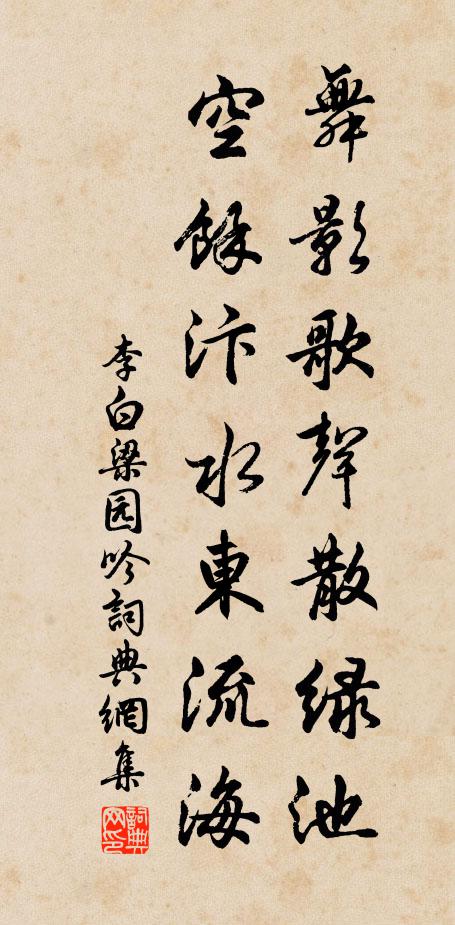 舞影歌聲散緑池
空餘汴水東流海
李白梁园吟詞典網集
詞典网印